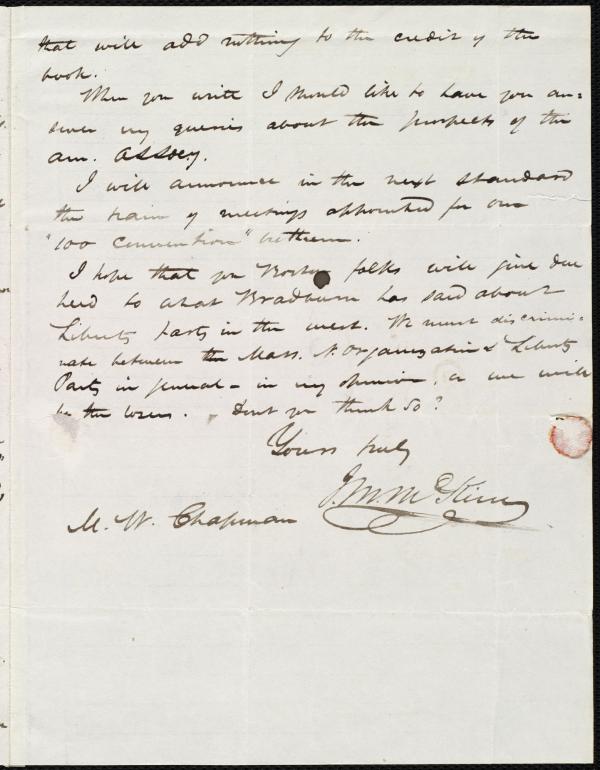 that will add nothing to the credit of the
book.
When you write I should like to have you an=
swer my queries about the prospects of the
am. Assoey.
I will announce in the next standard
the train of meetings appointed for our
"100 convention" brethren.
I hope that you Boston folks will give due
heed to what Bradburn has said about
Liberty party in the west. We must discrimi=
nate between the Mass. N. Organization & Liberty
Party in general - in my opinion, or we will
be the losers. Dont you think so?
Yours truly
J. M. McKim
M. W. Chapman